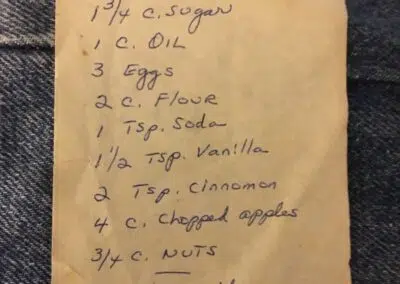 1 3/4 c. Sugar
1 c. OIL
3 Eggs
2 c. Flour
1 Tsp. Soda
1 1/2 Tsp. Vanilla
2 Tsp. Cinnomon
4 c. Chopped apples
3/4 c. NUTS